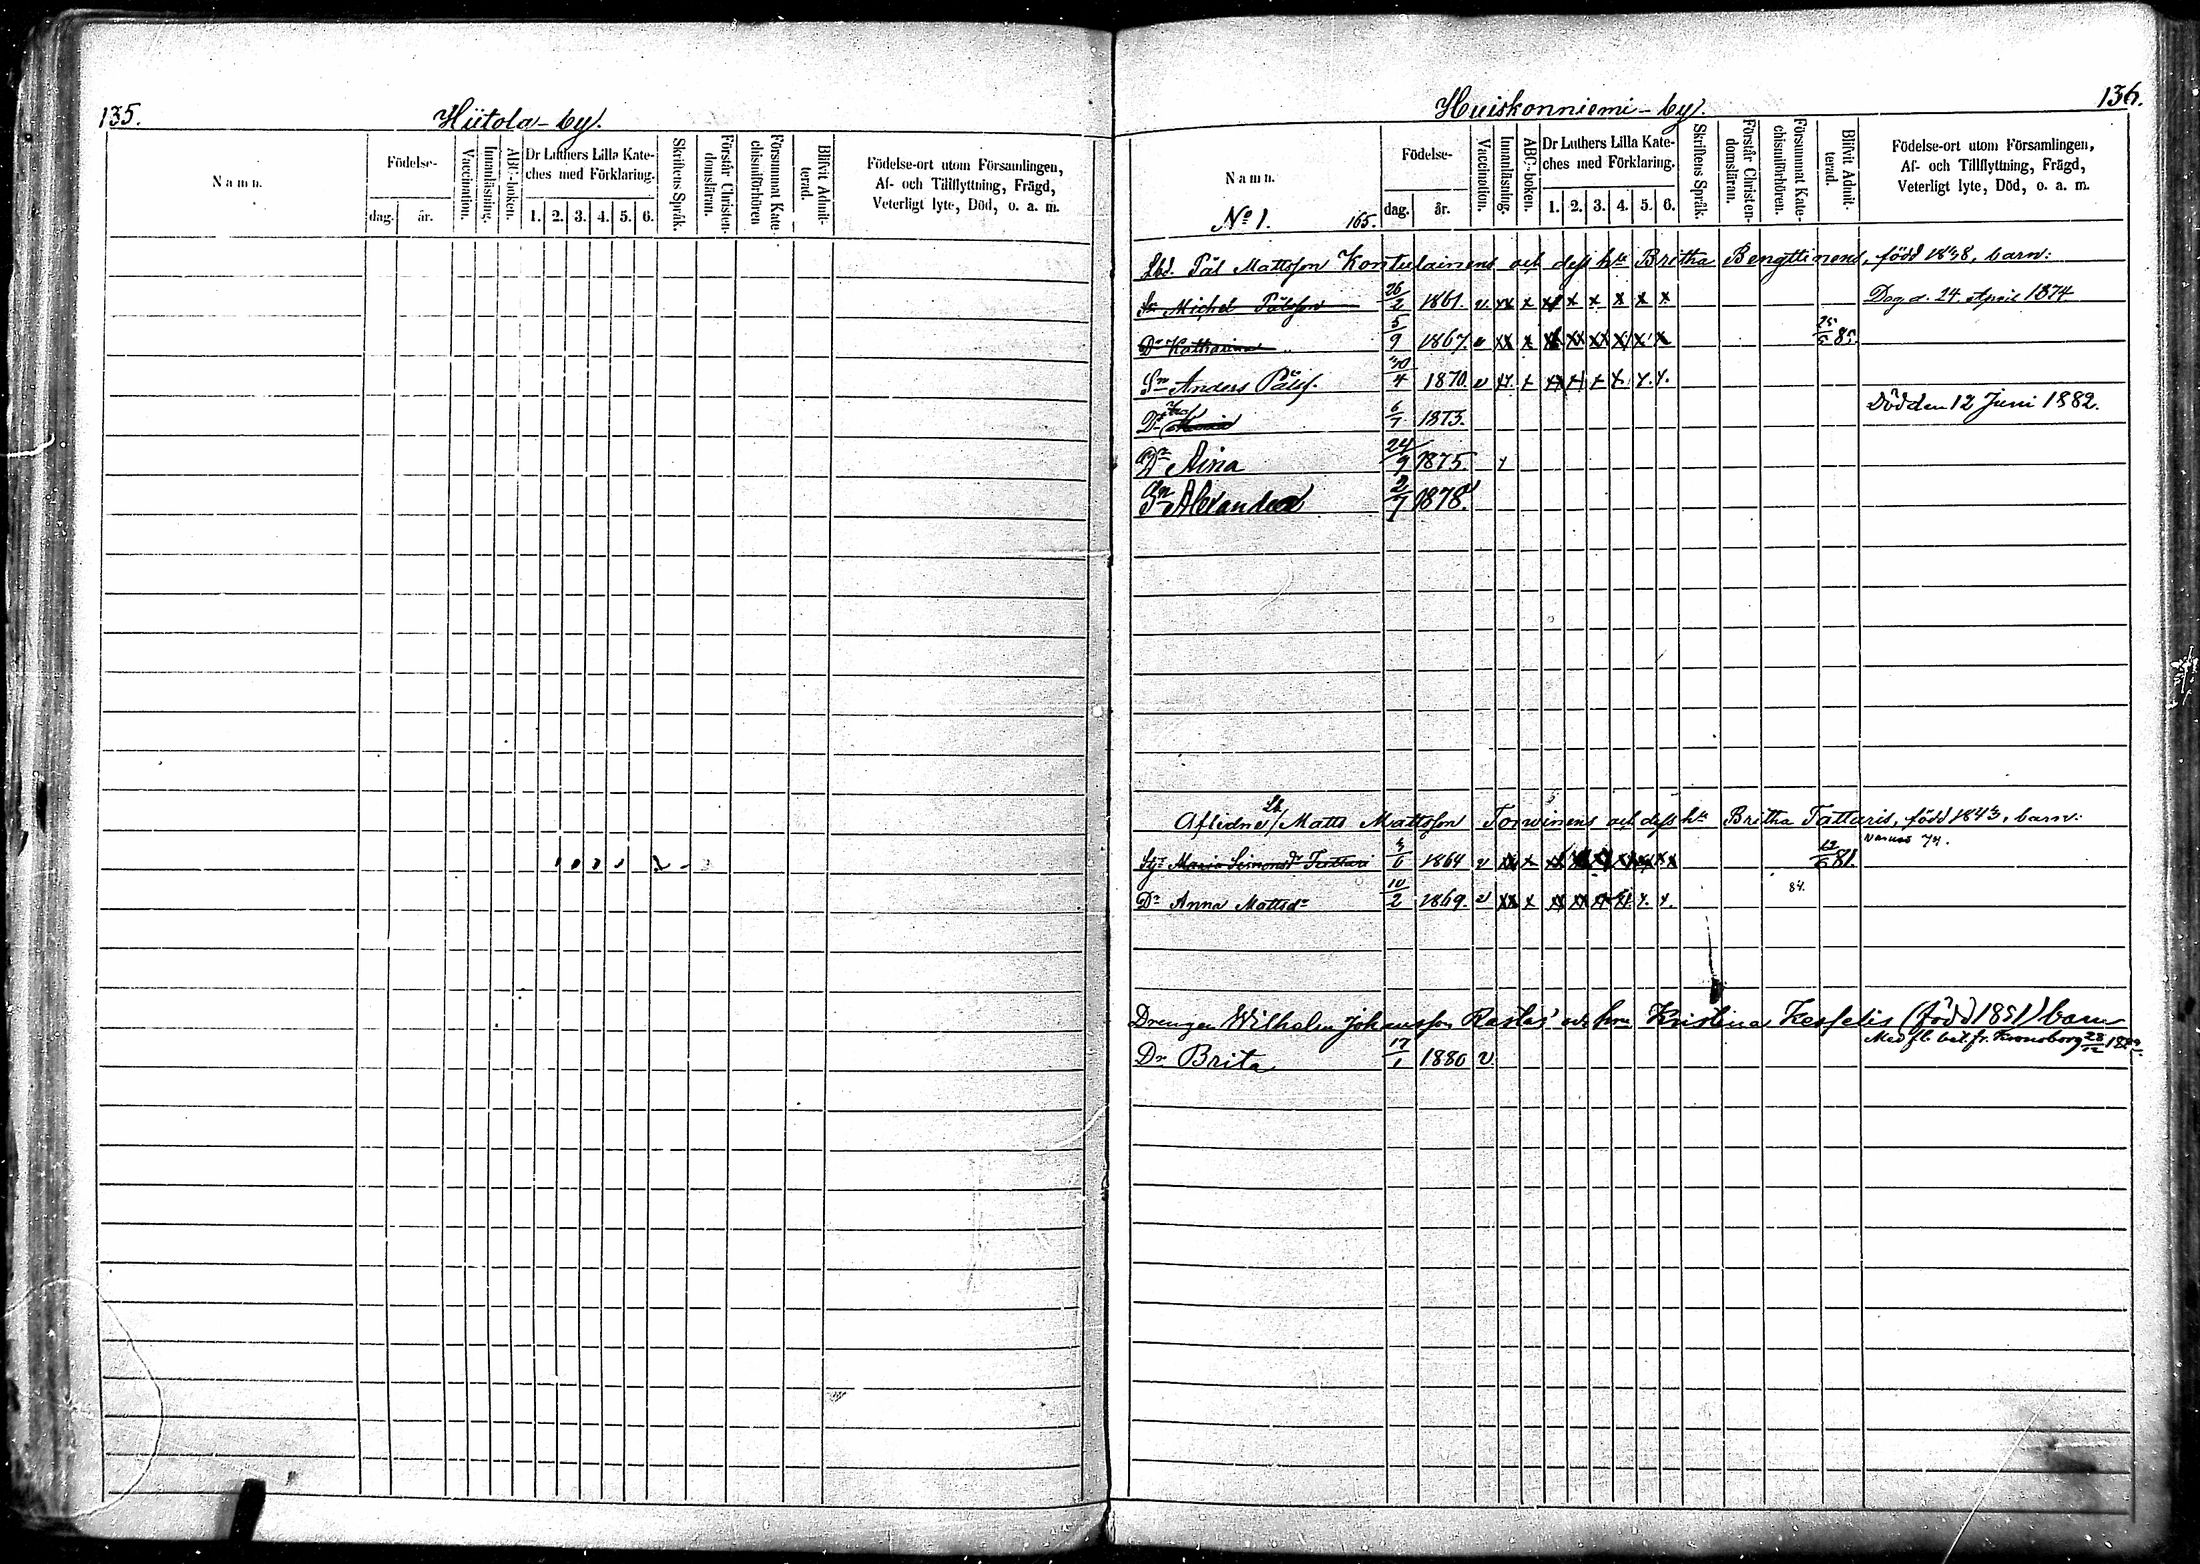 135.
Hiitola-by.
Namn.
Födelse-
dag.
år.
Vaccination.
Innanläsning.
ABC-boken.
Dr Luthers Lilla Kate-
ches med Förklaring.
1. 2. 3. 4. 5. 6.
Skriftens Språk.
Förstår Christen-
domsläran.
Försummat Kate
chismiförhören
Blifvit Admit-
terad.
Födelse-ort utom Församlingen,
Af- och Tillflyttning, Frägd,
Veterligt lyte, Död, o. a. m.
136.
Huiskonniemi-by.
Namn.
No 1. 165.
Födelse-
dag.
år.
Vaccination.
Innanläsning.
ABC-boken.
Dr Luthers Lilla Kate-
ches med Förklaring.
1. 2. 3. 4. 5. 6.
Skriftens Språk.
Förstår Christen-
domsläran.
Försummat Kate-
chismiförhören.
Blifvit Admit-
terad.
Födelse-ort utom Församlingen,
Af- och Tillflyttning, Frägd,
Veterligt lyte, Död, o. a. m.
Lbd. Pål Mattsson Kontulainens och dess hu Britha Bengttinens, född 1838, barn:
Sn Michel Pålsson 26/2 1861. v xx x xx x x x x x Dog d. 24 April 1874
Dr Katharina " 5/9 1867. v xx x xx xx xx x x x 85.
Sn Anders Pålss. 30/4 1870. v
Dr 6/7 1873. Död den 12 Juni 1882.
Dr Aina 24/9 1875.
Sn Alexander 2/7 1878. v
Aflidne Lb. Matts Mattsson Torvinens och dess hu Britha Tattaris, född 1843, barn:
Maria Simonsdr Tattari 1864 v 81. 74.
84.
Dr Anna Mattsdr 10/2 1869. v xx x
Drengen Wilhelm Johansson Rastas' och hru Kristina Kesselis (född 1851) barn
Med fl. bet. fr. Kronoborg
Dr Brita 17/1 1880 v.